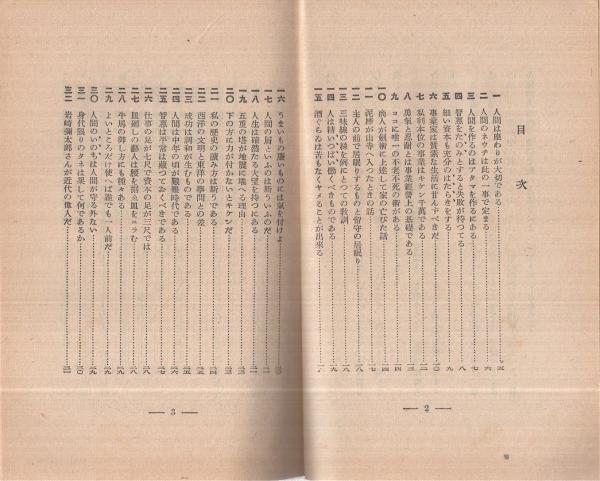 目次
一 人間は座わりが大切である
二 人間のネウチは此の一事で定まる
三 人間を作るのはアタマを作るにある
四 智惠をたのみとすると失敗が待つてる
五 細い資本も充分のはたらきをする
六 事業家は質素な生活に甘んずべきだ
七 私利本位の事業はキケン千萬である
八 勇氣と忍耐とは事業經營上の基礎である
九 ココに唯一の不老不死の術がある
一〇 商人が劍術に上達して家の亡びた話
一一 泥棒が山寺へ入つたときの話
一二 主人の前で居眠りするものと留守の居眠り
一三 三味線の絲を例にとつての敎訓
一四 人は精いつぱい働くべきものである
一五 酒ぐらゐは苦もなくヤメることが出來る
― 2 ―
一六 うまいもの廉いものには氣を付けよ
一七 人間の屑といふのは斯ういふのだ
一八 人生は確乎たる大望を持つにある
一九 五重の塔が地震に堪へる理由
二〇 下の方に力が付かないとキケンだ
二一 私の歷史の讀み方は斯うである
二二 西洋の文明と東洋の學問との差
二三 成功は調和が生むものである
二四 人間は中年の頃が難難時代である
二五 智惠は平常は藏つておくべきだ
二六 仕事の足が七尺で資本の足が三尺では
二七 皿廻しの藝人は腰を据ゑ皿をニラむ
二八 牛馬の御し方にも種々ある
二九 よいところだけ使へば誰でも一人前だ
三〇 人間のいのちは人間が守る外ない
三一 身代限りのタネは果して何であるか
三二 岩崎彌太郎さんが近代の偉人だ
― 3 ―